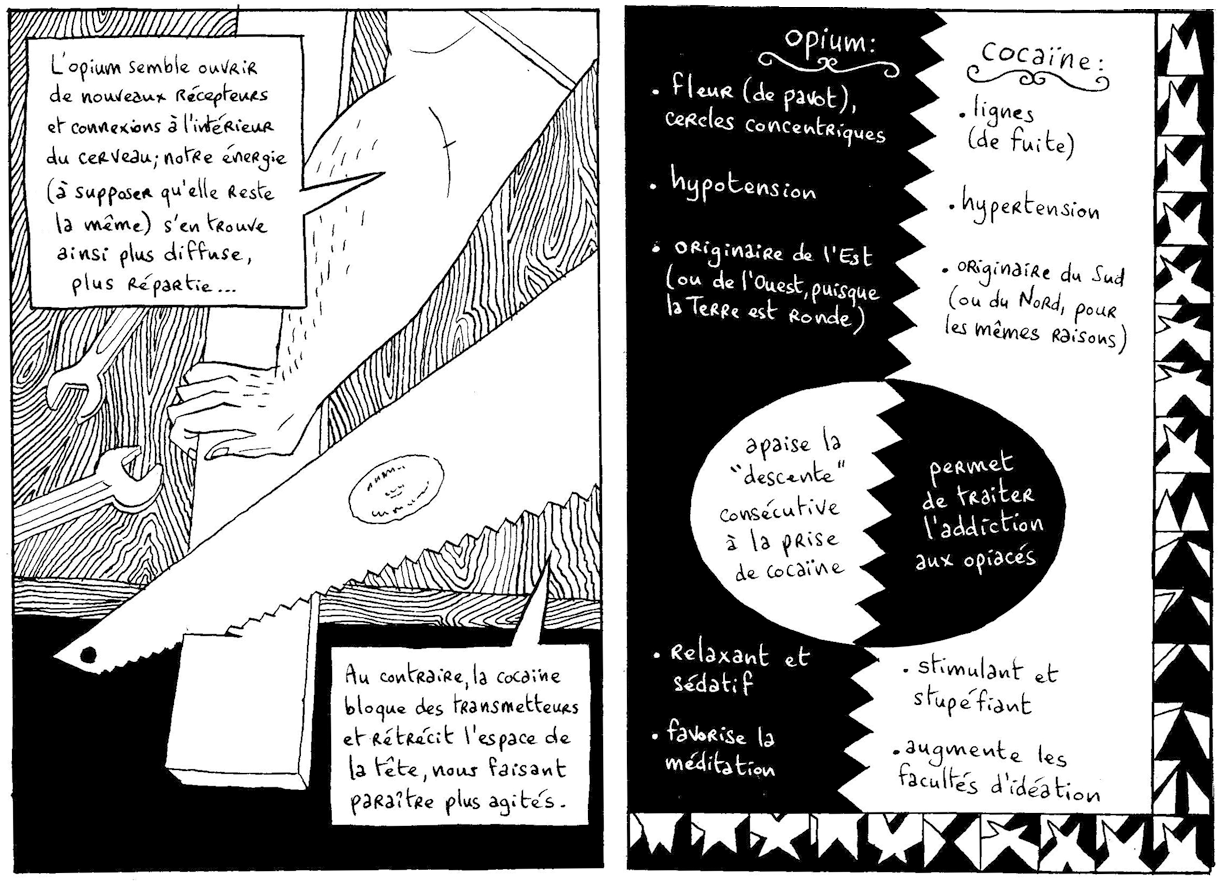 L'opium semble ouvrir
de nouveaux récepteurs
et connexions à l'intérieur
du cerveau; notre énergie
(à supposer qu'elle reste
la même) s'en trouve
ainsi plus diffuse,
plus répartie...
Au contraire, la cocaïne
bloque des transmetteurs
et rétrécit l'espace de
la tête, nous faisant
paraître plus agités.
opium:
• fleur (de pavot),
cercles concentriques
• hypotension
• originaire de l'Est
(ou de l'Ouest, puisque
la Terre est ronde)
cocaïne:
• lignes
(de fuite)
• hypertension
• originaire du Sud
(ou du Nord, pour
les mêmes raisons)
apaise la
"descente"
consécutive
à la prise
de cocaïne
permet
de traiter
l'addiction
aux opiacés
• relaxant et
sédatif
• favorise la
méditation
• stimulant et
stupéfiant
• augmente les
facultés d'idéation